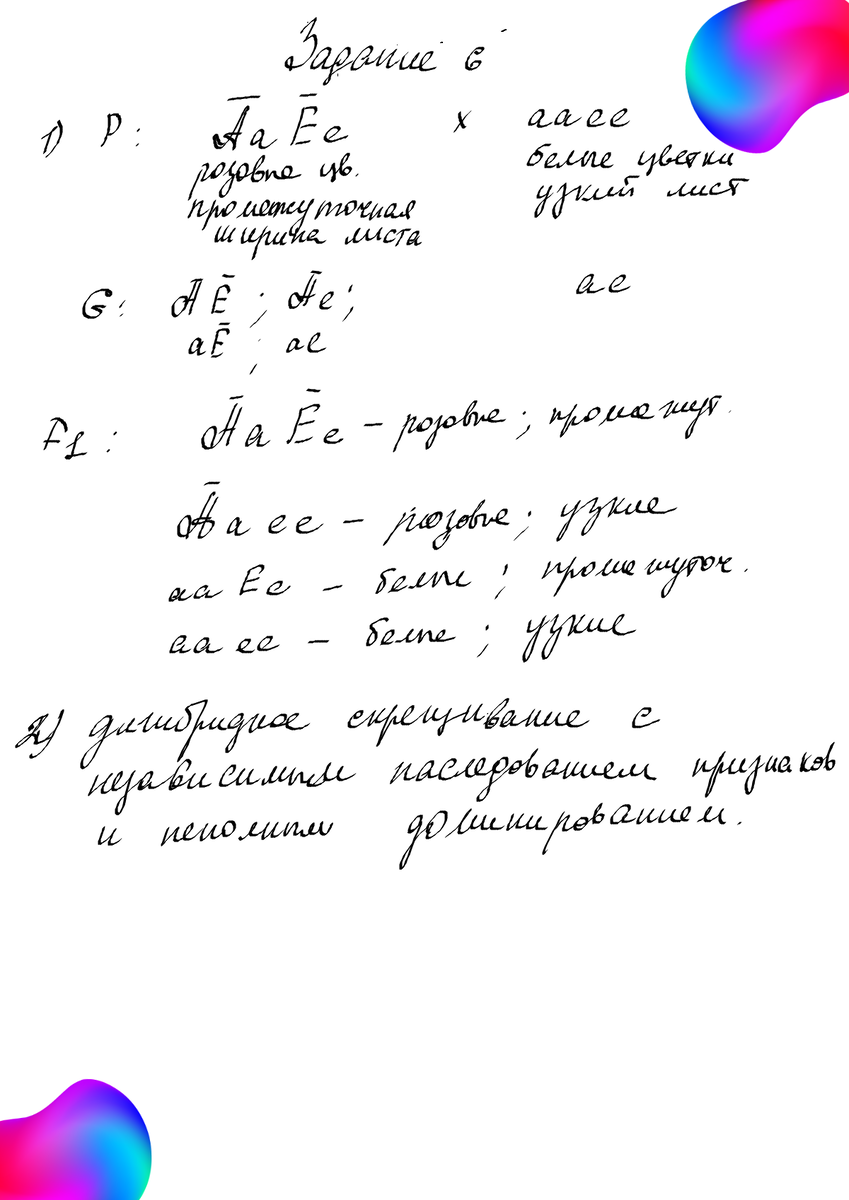 Задание 6
1) P: A̅aE̅e x aaee
розовые цв. белые цветки
промежуточная узкий лист
ширина листа
G: A̅E̅; A̅e; ae
aE̅; ae
F1: A̅aE̅e – розовые; промежут.
A̅aee – розовые; узкие
aaEe – белые; промежуточ.
aaee – белые; узкие
2) дигибридное скрещивание с
независимым наследованием признаков
и неполным доминированием.